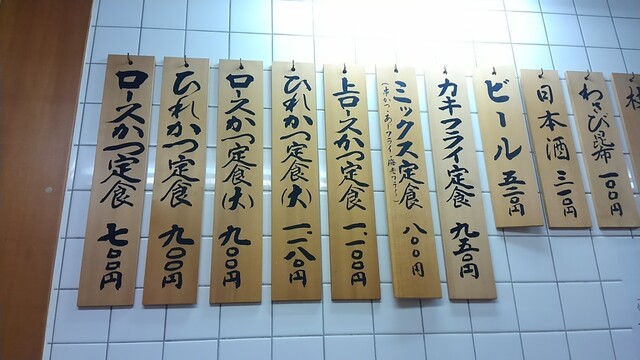 ロースかつ定食 七五〇円
ひれかつ定食 九〇〇円
ロースかつ定食(大) 九〇〇円
ひれかつ定食(大) 一、一八〇円
上ロースかつ定食 一、一〇〇円
ミックス定食 八〇〇円
カキフライ定食 九五〇円
ビール 五二〇円
日本酒 三一〇円
わさび昆布 一〇〇円